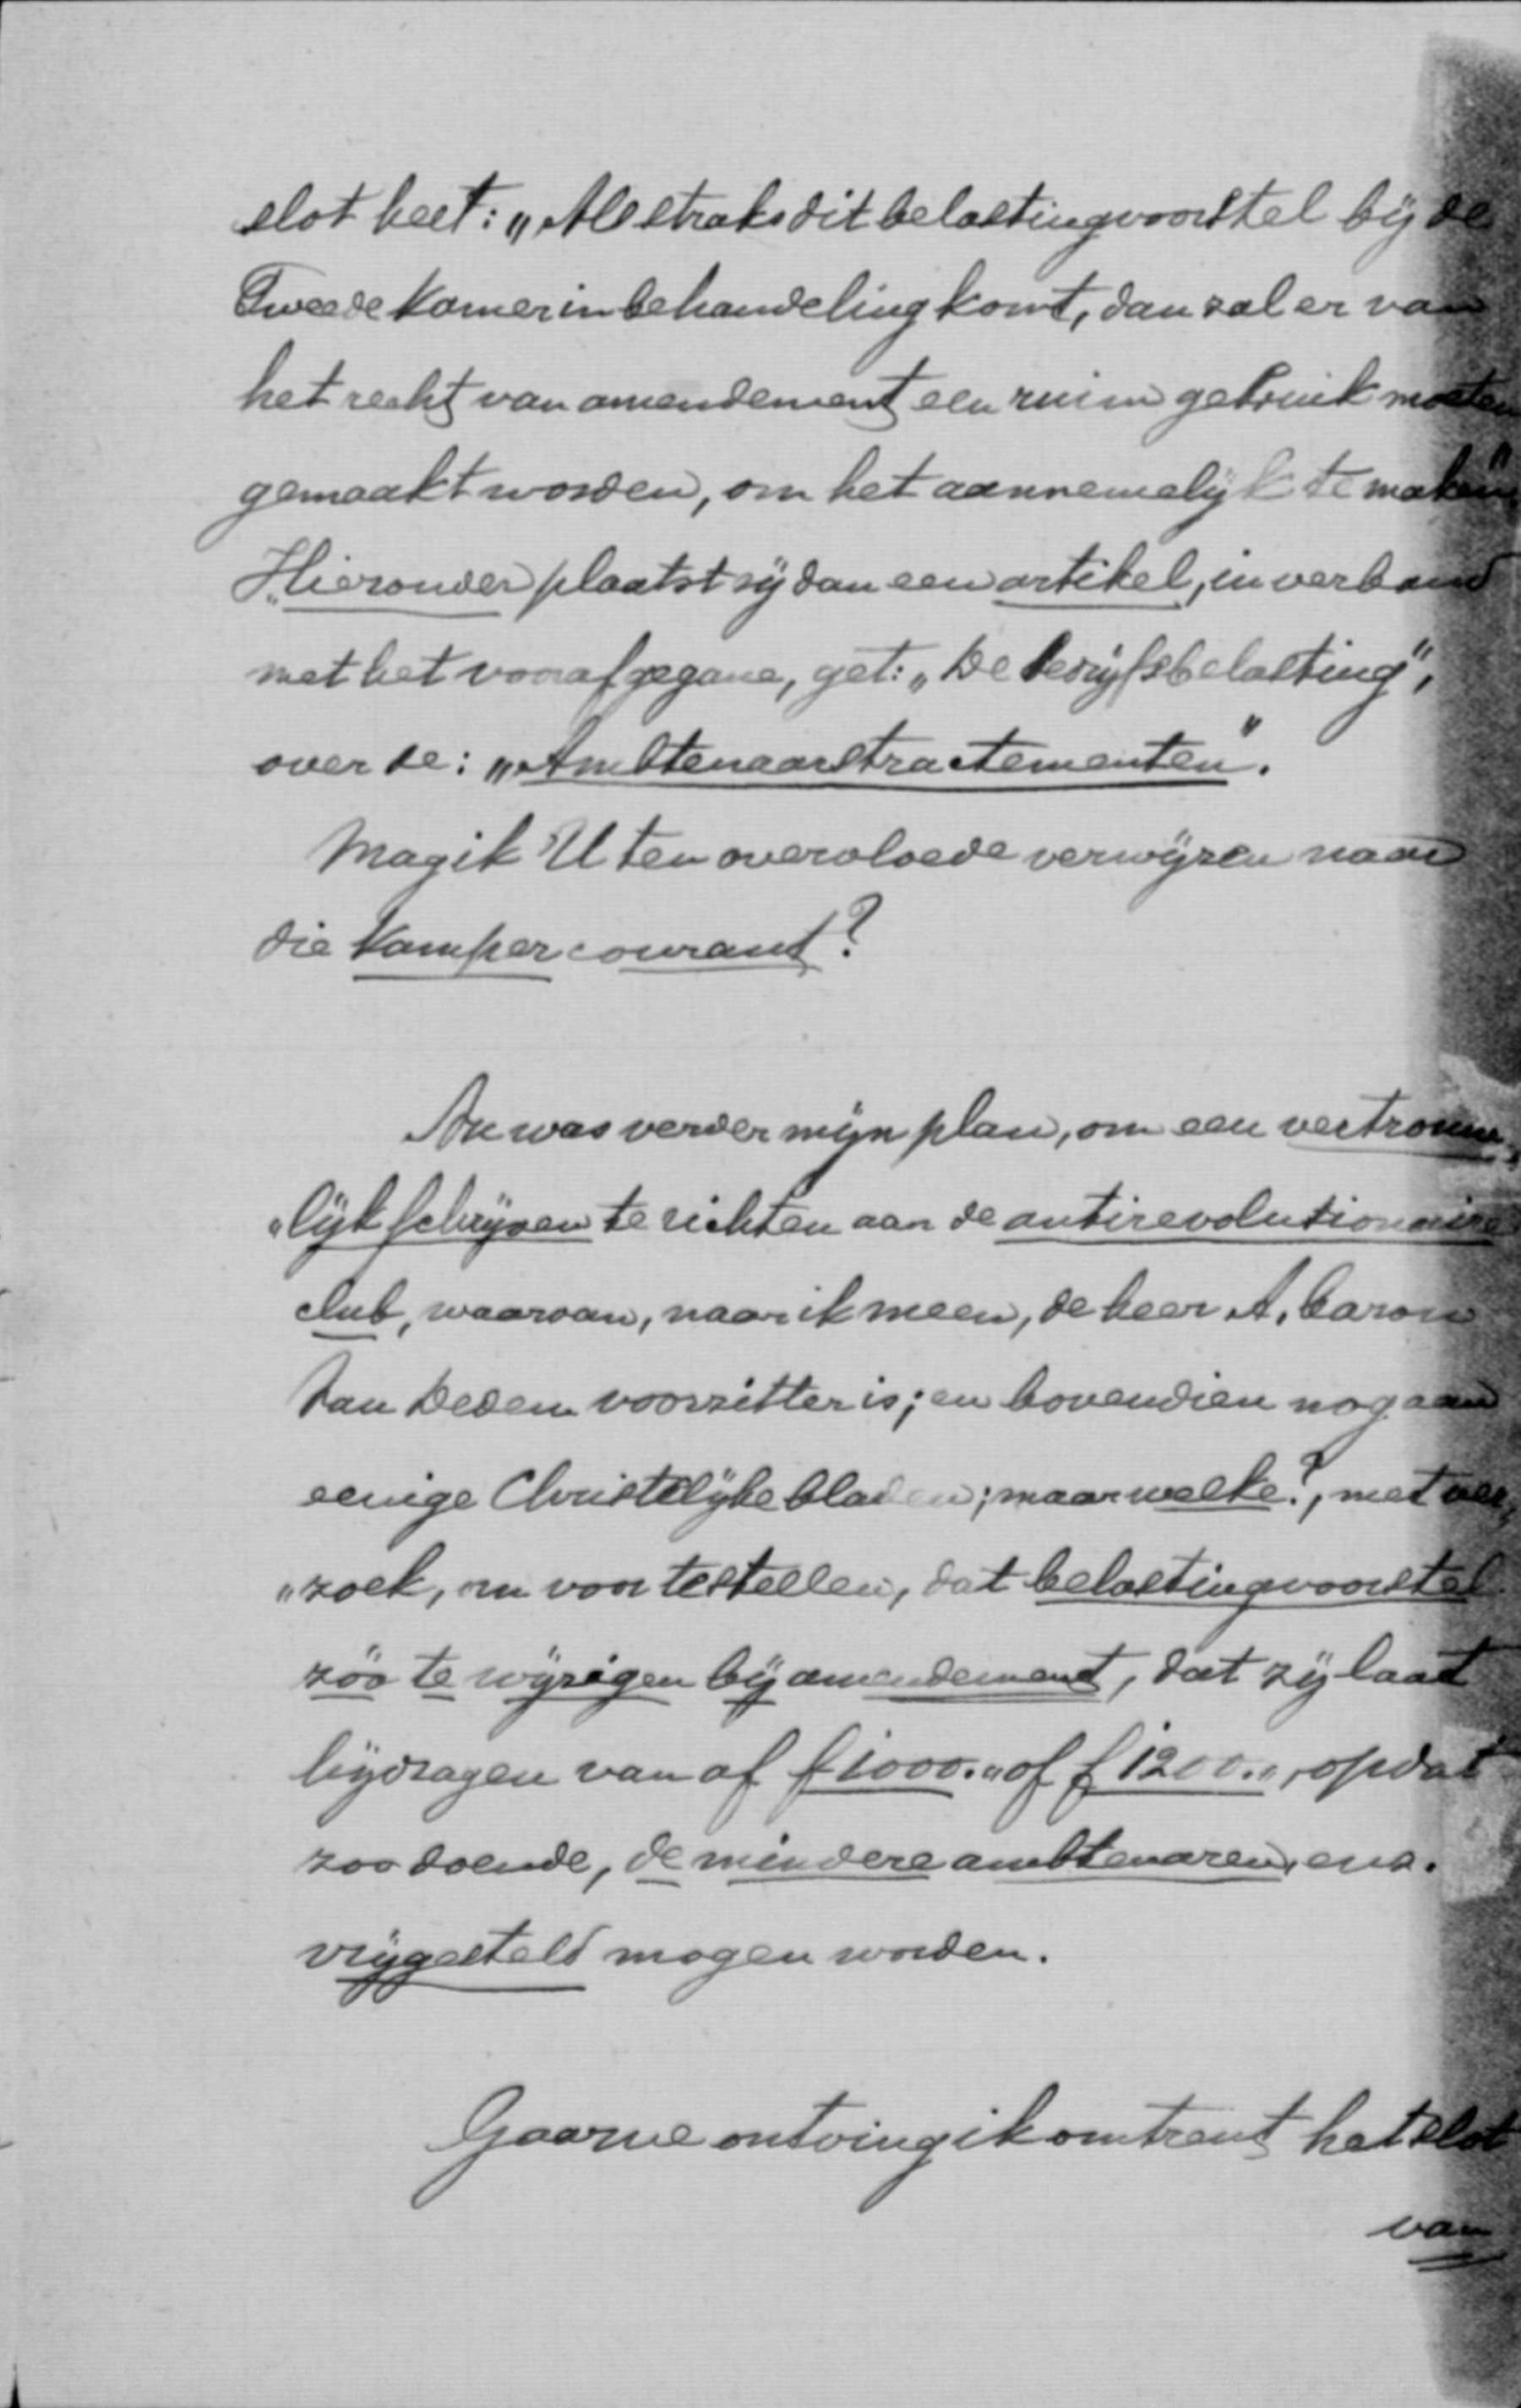 slot heet: „Als straks dit belastingvoorstel bij de
Tweede Kamer in behandeling komt, dan zal er van
het recht van amendement een ruim gebruik moeten
gemaakt worden, om het aannemelijk te maken"
„Hieronder plaatst zij dan een artikel, in verband
met het voorafgegane, get: „De bedrijfsbelasting",
over de: „Ambtenaarstractementen".
Mag ik U ten overvloede verwijzen naar
die Kamper courant?
Nu was verder mijn plan, om een vertrouwe„
„lijk schrijven te richten aan de antirevolutionaire
club, waarvan, naar ik meen, de heer A. baron
van Dedem voorzitter is; en bovendien nog aan
eenige Christelijke bladen; maar welke?, met ver„
„zoek, om voor te stellen, dat belastingvoorstel
zóó te wijzigen bij amendement, dat zij laat
bijdragen van af f 1000.„ of f 1200.„, opdat
zoo doende, de mindere ambtenaren, enz.
vrijgesteld mogen worden.
Gaarne ontving ik omtrent het slot
van